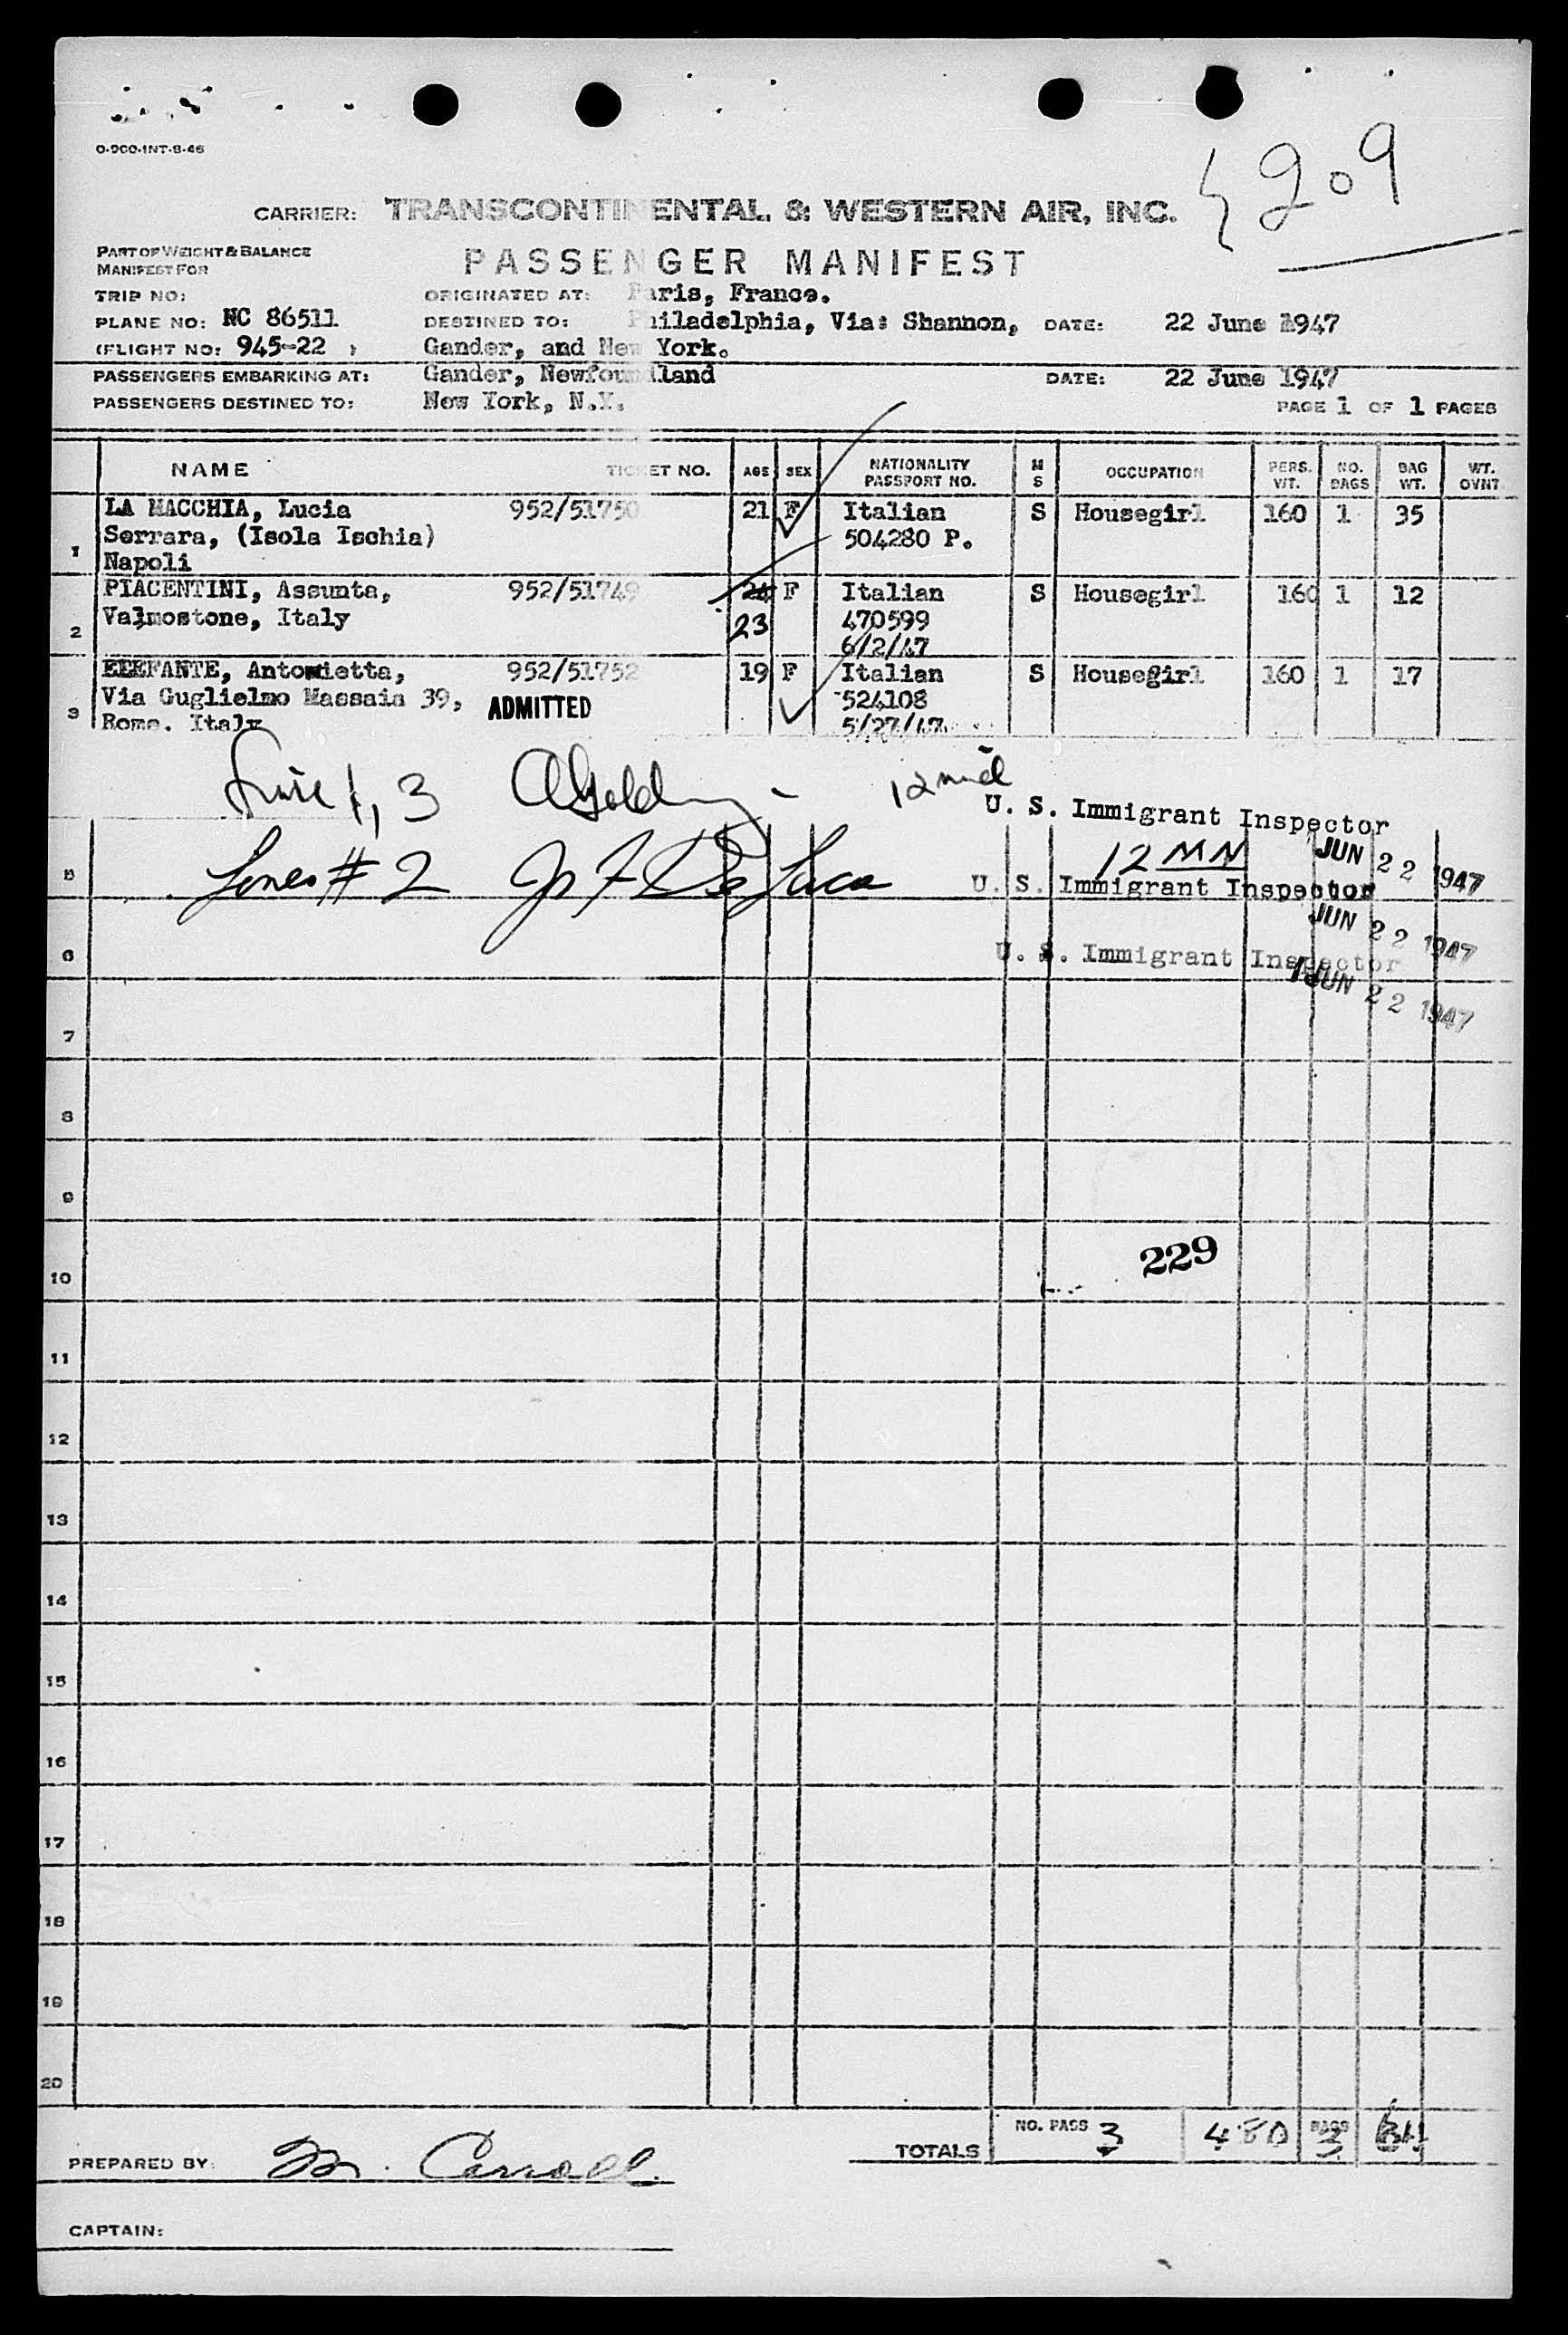 O-900-INT-8-46
4909
CARRIER: TRANSCONTINENTAL & WESTERN AIR, INC.
PART OF WEIGHT & BALANCE
MANIFEST FOR
PASSENGER MANIFEST
TRIP NO: ORIGINATED AT: Paris, France.
PLANE NO: NC 86511 DESTINED TO: Philadelphia, Via: Shannon, DATE: 22 June 1947
(FLIGHT NO: 945-22 ) Gander, and New York.
PASSENGERS EMBARKING AT: Gander, Newfoundland DATE: 22 June 1947
PASSENGERS DESTINED TO: New York, N.Y. PAGE 1 OF 1 PAGES
NAME TICKET NO. AGE SEX NATIONALITY PASSPORT NO. M S OCCUPATION PERS. WT. NO. BAGS BAG WT. WT. OVNT
LA MACCHIA, Lucia 952/51750 21 F Italian S Housegirl 160 1 35
Serrara, (Isola Ischia) 504280 P.
1 Napoli
PIACENTINI, Assunta, 952/51749 24 F Italian S Housegirl 160 1 12
2 Valmostone, Italy 23 470599
6/2/47
ELEFANTE, Antonietta, 952/51752 19 F Italian S Housegirl 160 1 17
Via Guglielmo Massaia 39, ADMITTED 524108
3 Rome. Italy 5/27/47
1, 3 12 mid
U. S. Immigrant Inspector
JUN 22 1947
5 Lines # 2 De Luca 12 MN
U. S. Immigrant Inspector
JUN 22 1947
6 U. S. Immigrant Inspector
JUN 22 1947
7
8
9
229
10
11
12
13
14
15
16
17
18
19
20
TOTALS NO. PASS 3 480 BAGS 3 64
PREPARED BY: M. Carroll
CAPTAIN: